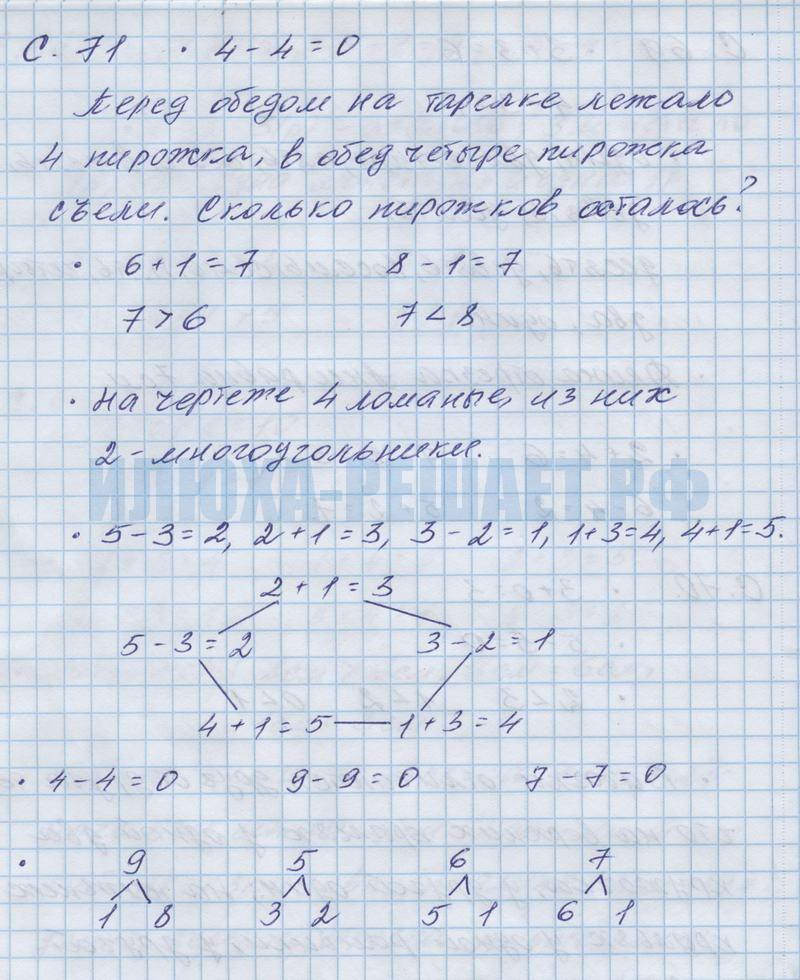 С. 71 · 4 - 4 = 0
Перед обедом на тарелке лежало
4 пирожка, в обед четыре пирожка
съели. Сколько пирожков осталось?
· 6 + 1 = 7 8 - 1 = 7
7 > 6 7 < 8
· На чертеже 4 ломаные, из них
2 - многоугольники.
ИЛЮХА-РЕШАЕТ.РФ
· 5 - 3 = 2, 2 + 1 = 3, 3 - 2 = 1, 1 + 3 = 4, 4 + 1 = 5.
2 + 1 = 3
5 - 3 = 2 3 - 2 = 1
4 + 1 = 5 1 + 3 = 4
· 4 - 4 = 0 9 - 9 = 0 7 - 7 = 0
· 9 5 6 7
1 8 3 2 5 1 6 1